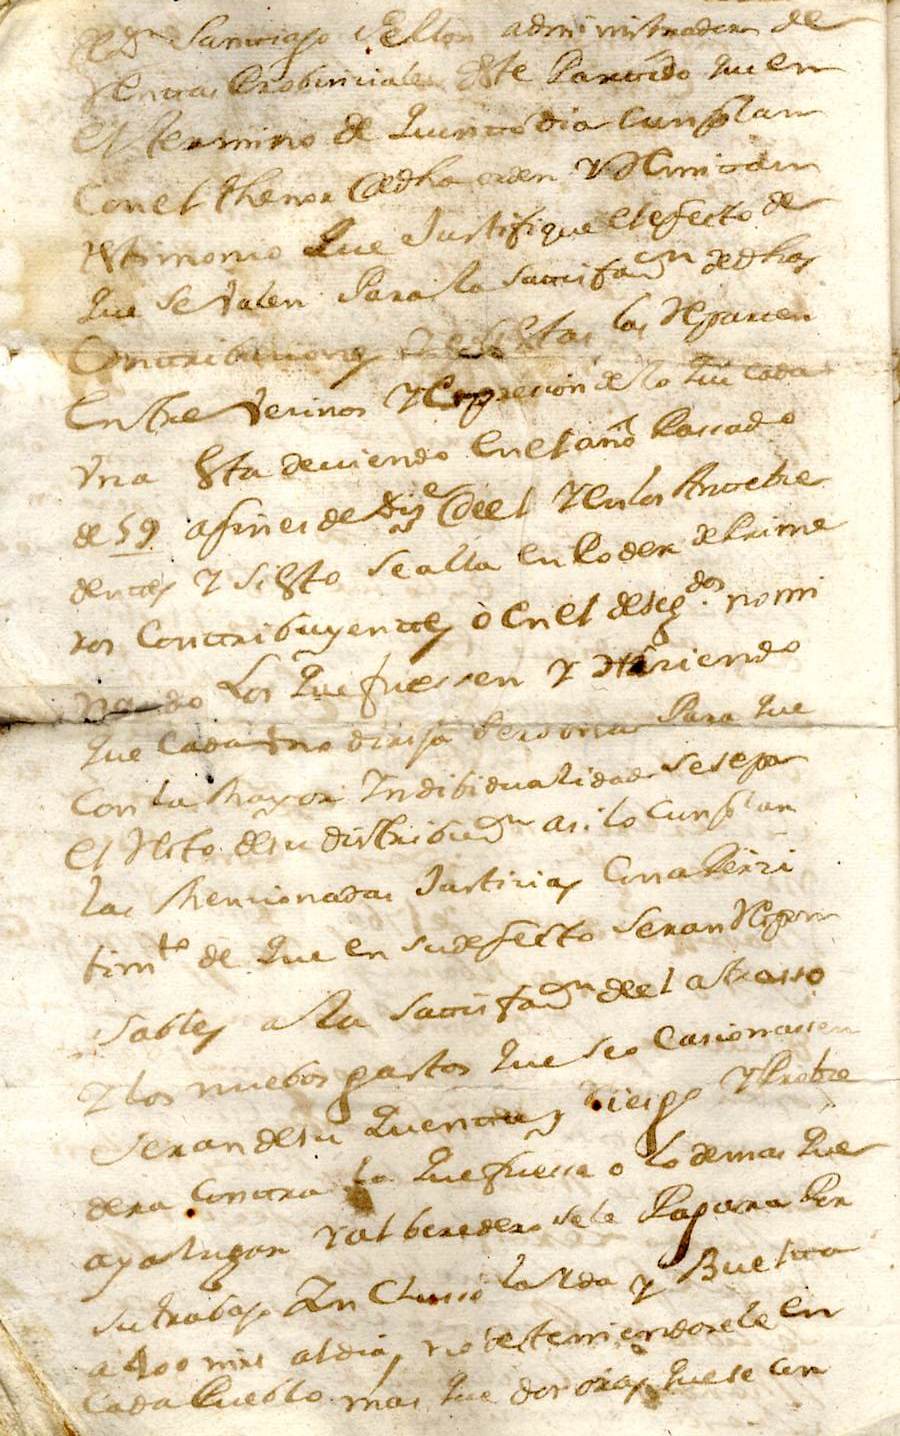 Dn Santiago administrador de
Rentas Probinciales deste Partido que en
el termino de quince dias cunplan
con el thenor de dha orden y Remitan
testimonio que Justifique el efecto de
que se valen Para la satisfazn de dhas
Contribuciones las Reparten
Entre Vezinos y Expresion de lo que cada
Vna esta deuiendo en el año Passado
de 59 a fines de Dize de el y en los
se alla en Poder de Prime
ros Contribuyentes o en el de segdos nomi
nando los que fuessen y
que cada vno dirija Persona Para que
con la mayor Indibidualidad se sepa
el de su distribuzn asi lo cunplan
las mencionadas Justicias con aPerzi
uimto de que en su defecto seran Respon
sables a la satisfazn de el atrasso
y los nuebos gastos que se ocasionassen
seran de su quenta y riesgo y Proze
dera contra la que fuesse o lo demas que
aya lugar y al beredero se le Pagara Por
su trabajo Inclusso la Yda y Buelta
a 400 mrs al dia, no deteniendosele en
cada Pueblo mas que dos oras que se le an